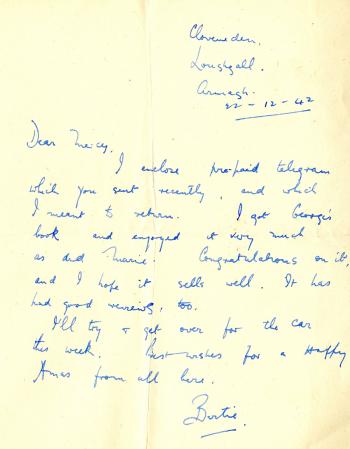 Cloveneden.
Loughgall.
Armagh.
22-12-42
Dear Mercy,
I enclose pre-paid telegram
which you sent recently, and which
I meant to return. I got George's
book and enjoyed it very much
as did Marie. Congratulations on it,
and I hope it sells well. It has
had good reviews, too.
I'll try & get over for the car
this week. Best wishes for a Happy
Xmas from all here.
Bertie.